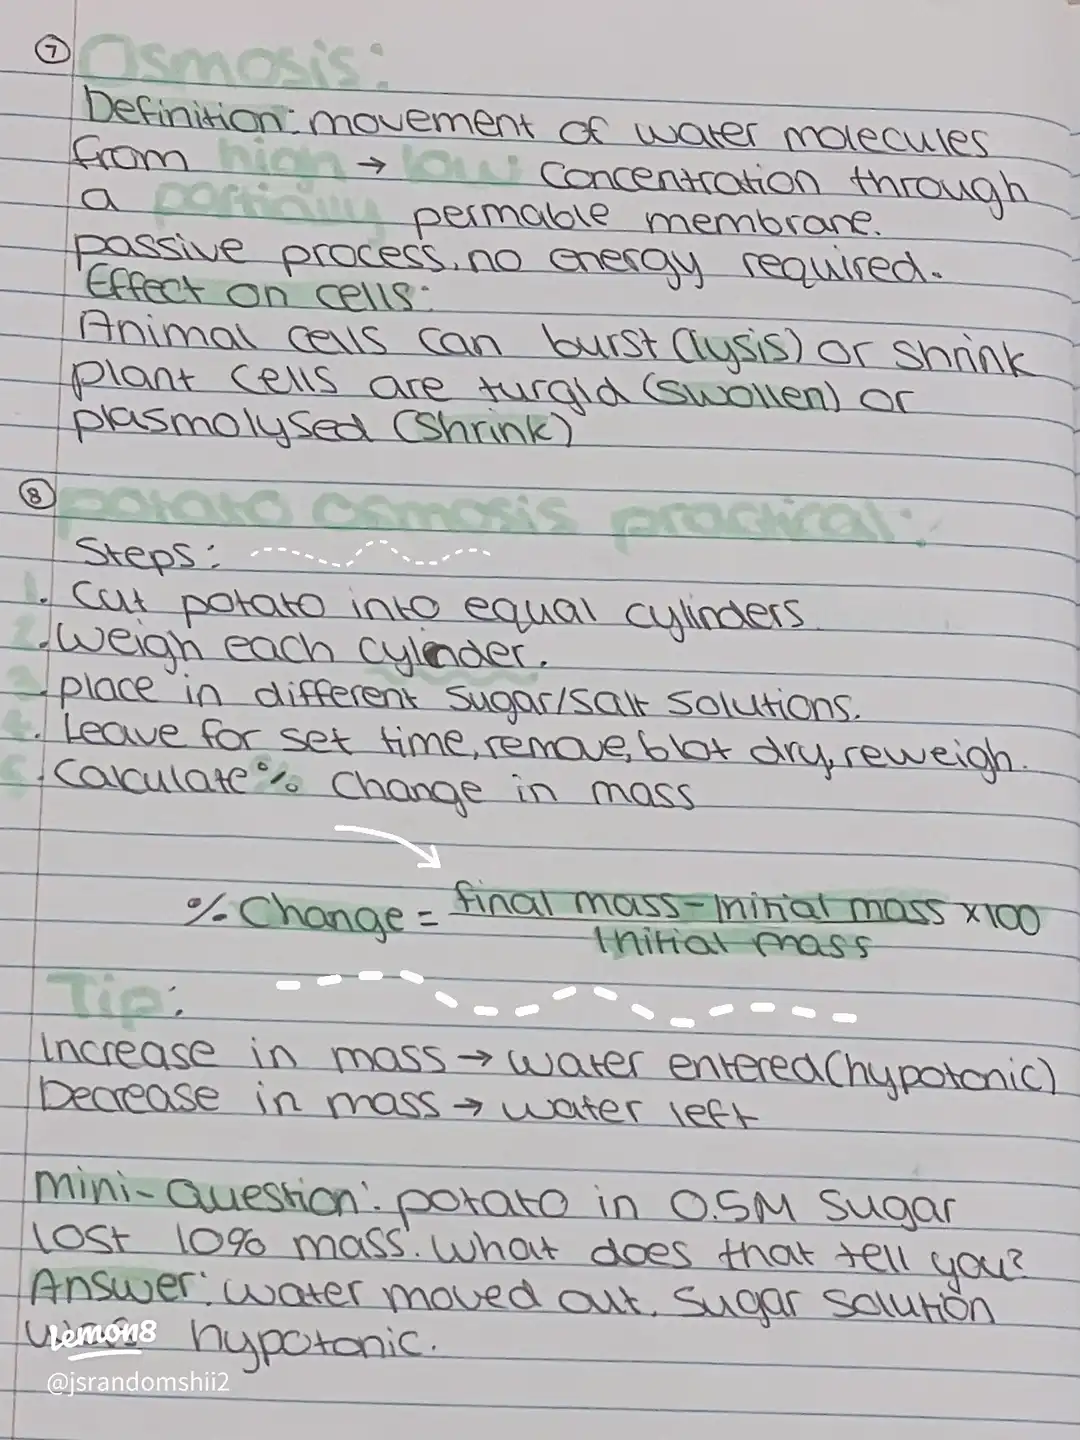 7 Osmosis:
Definition: movement of water molecules
from high → low concentration through
a partially permable membrane.
passive process, no energy required.
Effect on cells:
Animal cells can burst (lysis) or shrink
plant cells are turgid (swollen) or
plasmolysed (shrink)
8 potato osmosis practical:
Steps:
1. Cut potato into equal cylinders
2. Weigh each cylinder.
3. place in different sugar/salt solutions.
4. Leave for set time, remove, blot dry, reweigh.
5. Calculate % change in mass
% Change = final mass - Initial mass x100
Initial mass
Tip:
Increase in mass → water entered (hypotonic)
Decrease in mass → water left
mini-Question: potato in 0.5M sugar
lost 10% mass. What does that tell you?
Answer: water moved out. Sugar solution
hypotonic.
lemon8
@jsrandomshii2